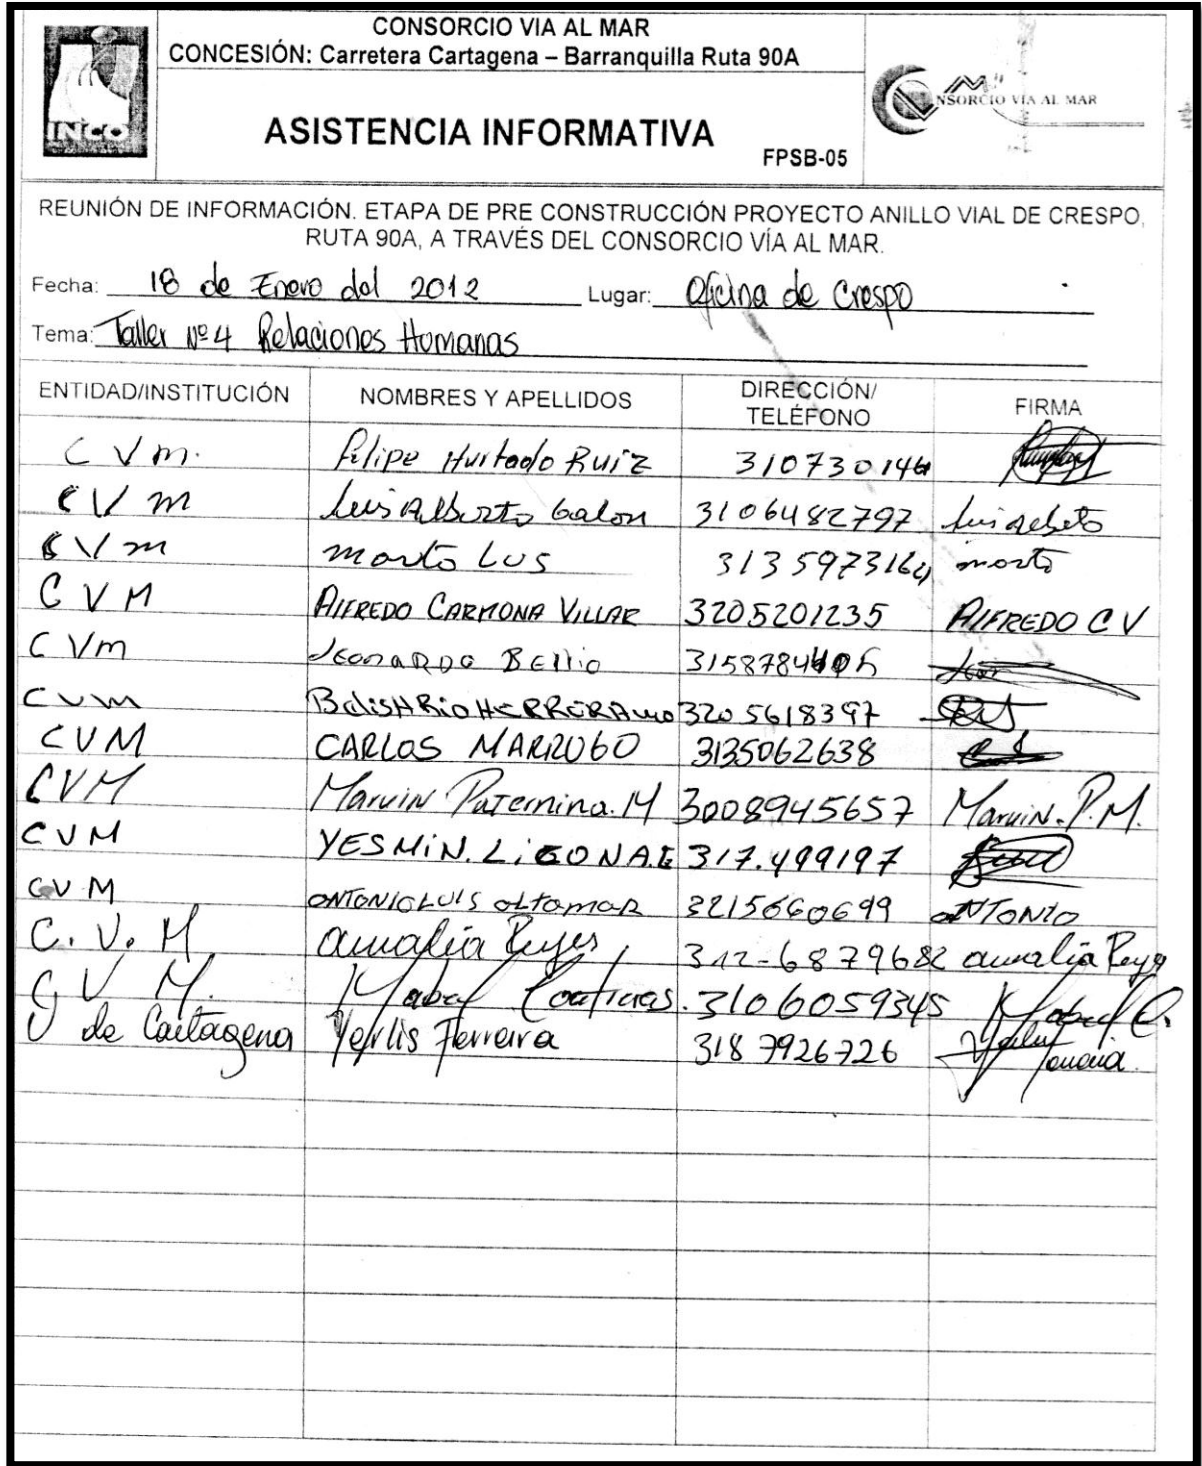 CONSORCIO VIA AL MAR
CONCESIÓN: Carretera Cartagena – Barranquilla Ruta 90A
INCO
NSORCIO VIA AL MAR
ASISTENCIA INFORMATIVA
FPSB-05
REUNIÓN DE INFORMACIÓN. ETAPA DE PRE CONSTRUCCIÓN PROYECTO ANILLO VIAL DE CRESPO,
RUTA 90A, A TRAVÉS DEL CONSORCIO VÍA AL MAR.
Fecha: 18 de Enero del 2012 Lugar: Oficina de Crespo
Tema: Taller Nº4 Relaciones Humanas
ENTIDAD/INSTITUCIÓN NOMBRES Y APELLIDOS DIRECCIÓN/ TELÉFONO FIRMA
C V m. Felipe Hurtado Ruiz 310730146
C V m Luis Alberto Galon 3106482797 Luis Alberto
C V m 3135973164
C V M AlFREDO CARMONA VILLAR 3205201235 AlFREDO C V
C Vm Leonardo Bellio
CVM BelisARio HERRERA 3205618397
CVM CARLOS MARRUGO 3135062638
CVM Marvin Paternina.M 3008945657 Marvin.P.M.
CVM YESMIN. 317.499197
CV.M ANTONIO LUIS ALTAMAR 3215660699 ANTONIO
C. V. M amalia Reyes 312-6879682 amalia Reyes
C V. M. Mabel Contreras. 3106059345 Mabel C.
U de Cartagena Yerlis Ferreira 318 7926726